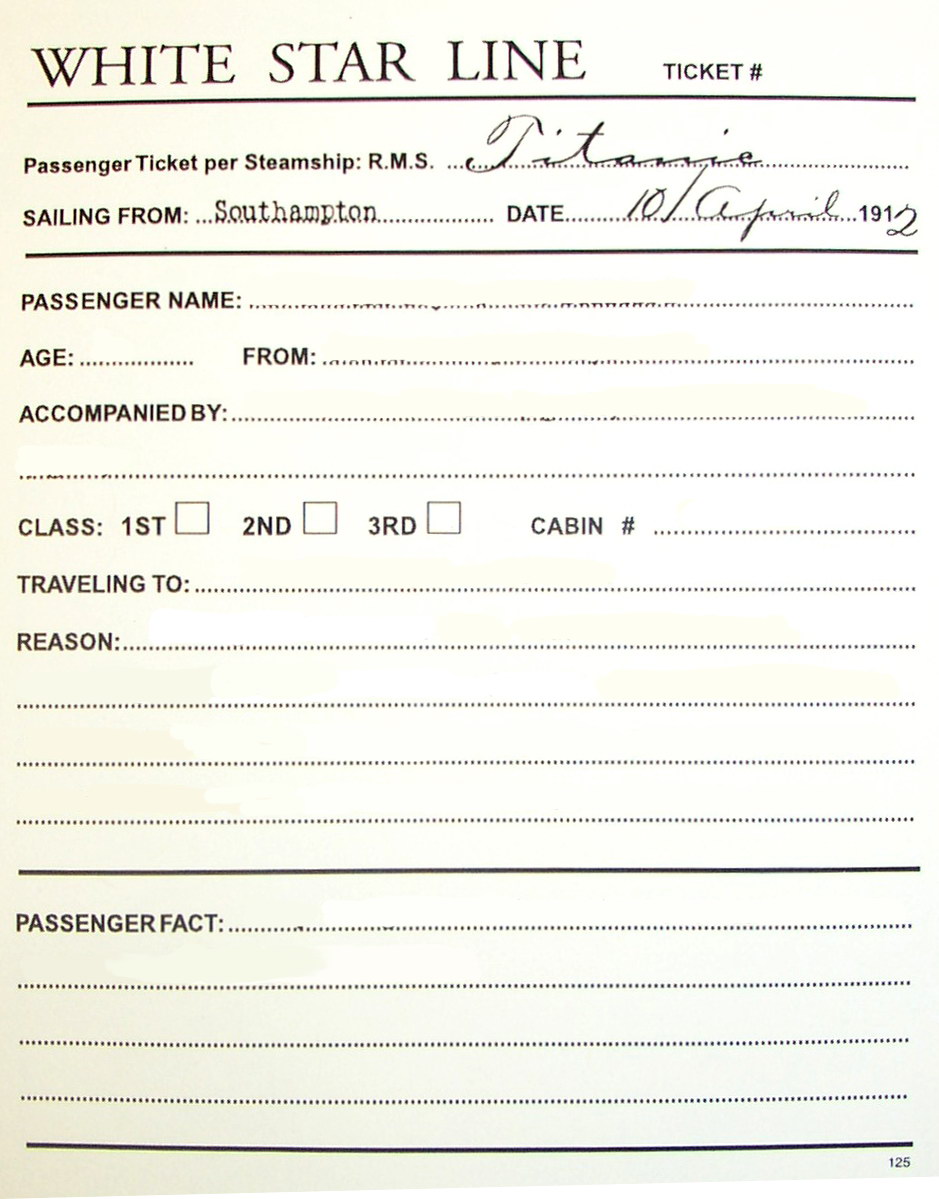 WHITE STAR LINE TICKET #
Passenger Ticket per Steamship: R.M.S. Titanic
SAILING FROM: Southampton DATE 10/April 1912
PASSENGER NAME:
AGE: FROM:
ACCOMPANIED BY:
CLASS: 1ST 2ND 3RD CABIN #
TRAVELING TO:
REASON:
PASSENGER FACT:
125